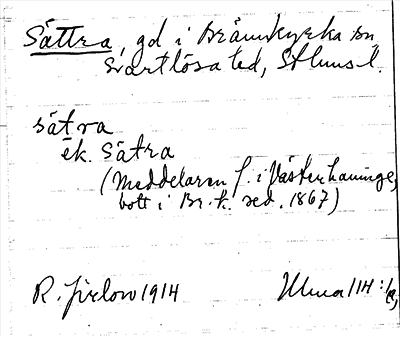 Sättra, gd i Brännkyrka sn
Svartlösa hd, Sthms l.
sätra
ék. Sätra
(Meddelaren f. i Västerhaninge,
bott i Br.k. sed. 1867)
R. Jirlow 1914